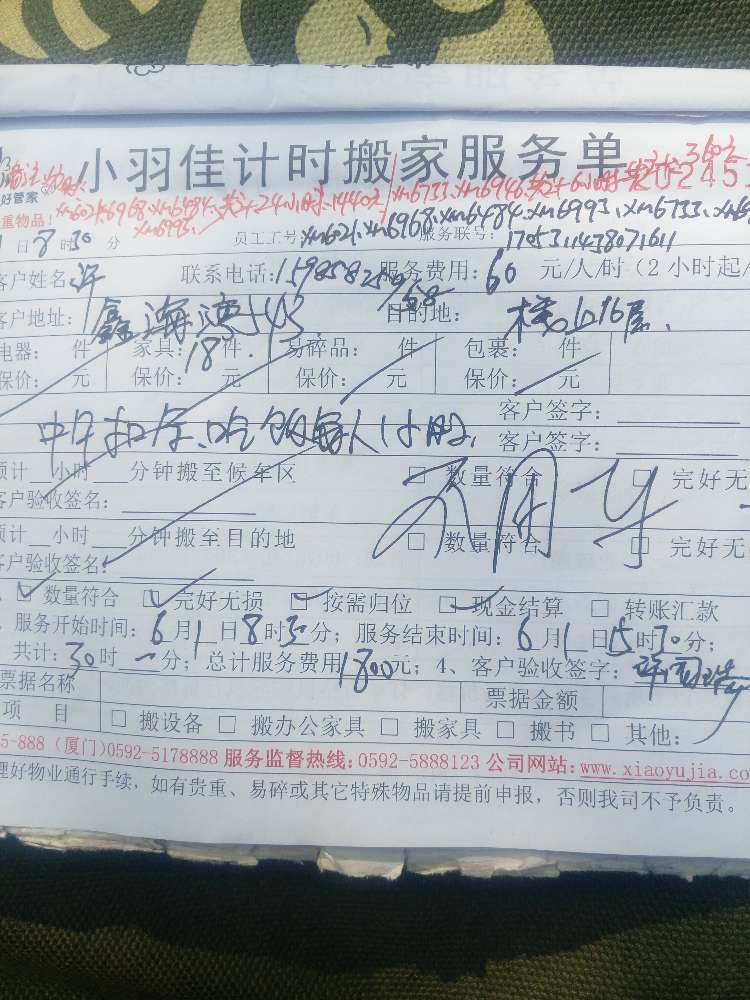 小羽佳计时搬家服务单
好管家
重物品!
共计24小时=1440元
xm6733、xm6946 共计6小时=360元
xm6993、
日8时30分 员工工号:xm621、xm6968、xm6484、xm6993、xm6733、
服务联号:17053111438071611
客户姓名:许 联系电话: 服务费用:60元/人/时(2小时起/
客户地址:鑫海湾 目的地:楼上16层、
电器: 件 家具:18件. 易碎品: 件 包裹: 件
保价: 元 保价: 元 保价: 元 保价: 元
客户签字:
中午扣除、吃饭每人1小时、 客户签字:
预计 小时 分钟搬至候车区 □ 数量符合 □ 完好无
客户验收签名: 不用车
预计 小时 分钟搬至目的地 □ 数量符合 □ 完好无
客户验收签名:
数量符合 完好无损 按需归位 现金结算 □ 转账汇款
服务开始时间:6月1日8时30分;服务结束时间:6月1日15时30分;
共计:30时一分;总计服务费用1800元;4、客户验收签字:
票据名称 票据金额
项 目 □ 搬设备 □ 搬办公家具 □ 搬家具 □ 搬书 □ 其他:
5-888 (厦门)0592-5178888 服务监督热线:0592-5888123 公司网站:www.xiaoyujia.co
理好物业通行手续,如有贵重、易碎或其它特殊物品请提前申报,否则我司不予负责。